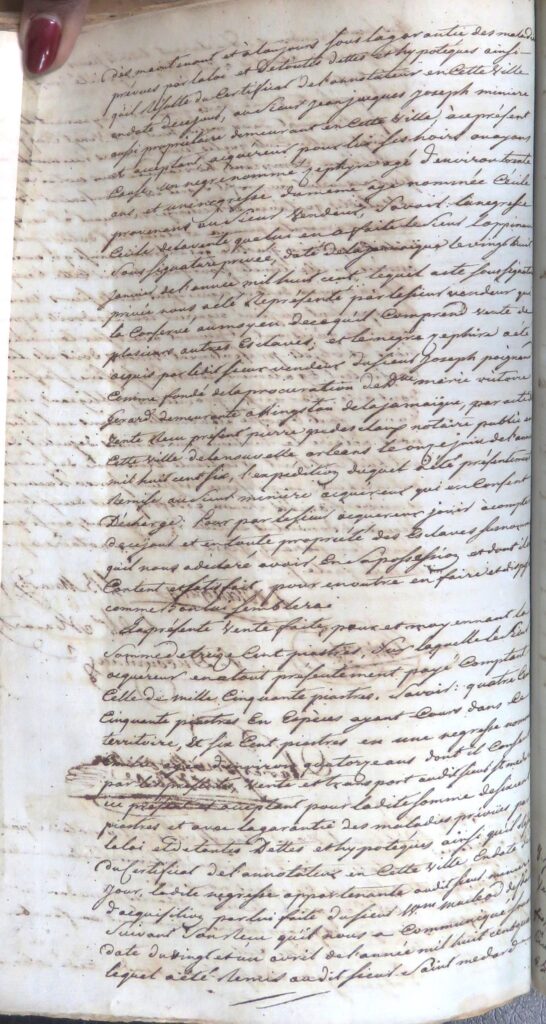 dès maintenant et à toujours sous la garantie des maladies
prevues par la loi et De toutes dettes et hypotèques ainsi
qu'il Résulte du Certificat de l'annotateur en Cette Ville
endate decejour, au Sieur jean jacques joseph miniere
aussi propriétaire demeurant en Cette Ville, à ce présent
et acceptant acquéreur pour lui ses hoirs ou ayans
Cause, un negre nommé Zephyr agé d'environ trente
ans, et une negresse du même age nommée Cécile
provenant au Sieur Vendeur, Savoir: la negresse
Cécile de la vente que lui en a faite le Sieur
Sous signature privée, datée de la jamaïque le vingt huit
janvier de l'année mil huit cent lequel acte sous signature
privée nous a été Représenté par le sieur vendeur qui
la Conservé au moyen de ce qu'il Comprend vente de
plusieurs autres Esclaves; et le negre zephire a été
acquis par ledit sieur vendeur du Sieur Joseph peigné
Comme fondé de la procuration de Dme marie victoire
Gerard demeurante à Kingston de la jamaique, par acte de
Vente Reçu present pierre pedesclaux notaire public en
Cette Ville de la nouvelle orleans le onze juin de l'année
mil huit cent six, l'expédition duquel a été présentement
Remise au Sieur miniere acquereur qui en Consent
Décharge. Pour par le sieur acquereur jouir à compter
de ce jour et en toute propriété des Esclaves
qu'il nous a déclaré avoir En sa possession et dont il est
Content et satisfait, pour en outre en faire et disposer
comme bon lui Semblera.
La présente Vente faite pour et moyennant la
Somme de treize Cent piastres, Sur laquelle le Sieur
acquereur en a tout présentement payé Comptant
Celle de mille Cinquante piastres. Savoir: quatre Cent
Cinquante piastres En Espèces ayant Cours dans ce
territoire, Et six Cent piastres en une negresse nommée
agée d'environ quatorze ans dont il Consent
par les présentes, Vente et transport audit Sieur St medard
ce présent et acceptant pour ladite somme de six cent
piastres et avec la garantie des maladies prévues par
la loi et de toutes Dettes et hypotèques ainsi qu'il
du Certificat de l'annotateur en Cette Ville Endate de ce
jour, ladite negresse appartenante audit Sieur miniere
d'acquisition par lui faite du Sieur Wm
Suivant Son Reçu qu'il nous a Communiqué
date du vingt et un avril de l'année mil huit cent
lequel a été Remis audit sieur Saint medard